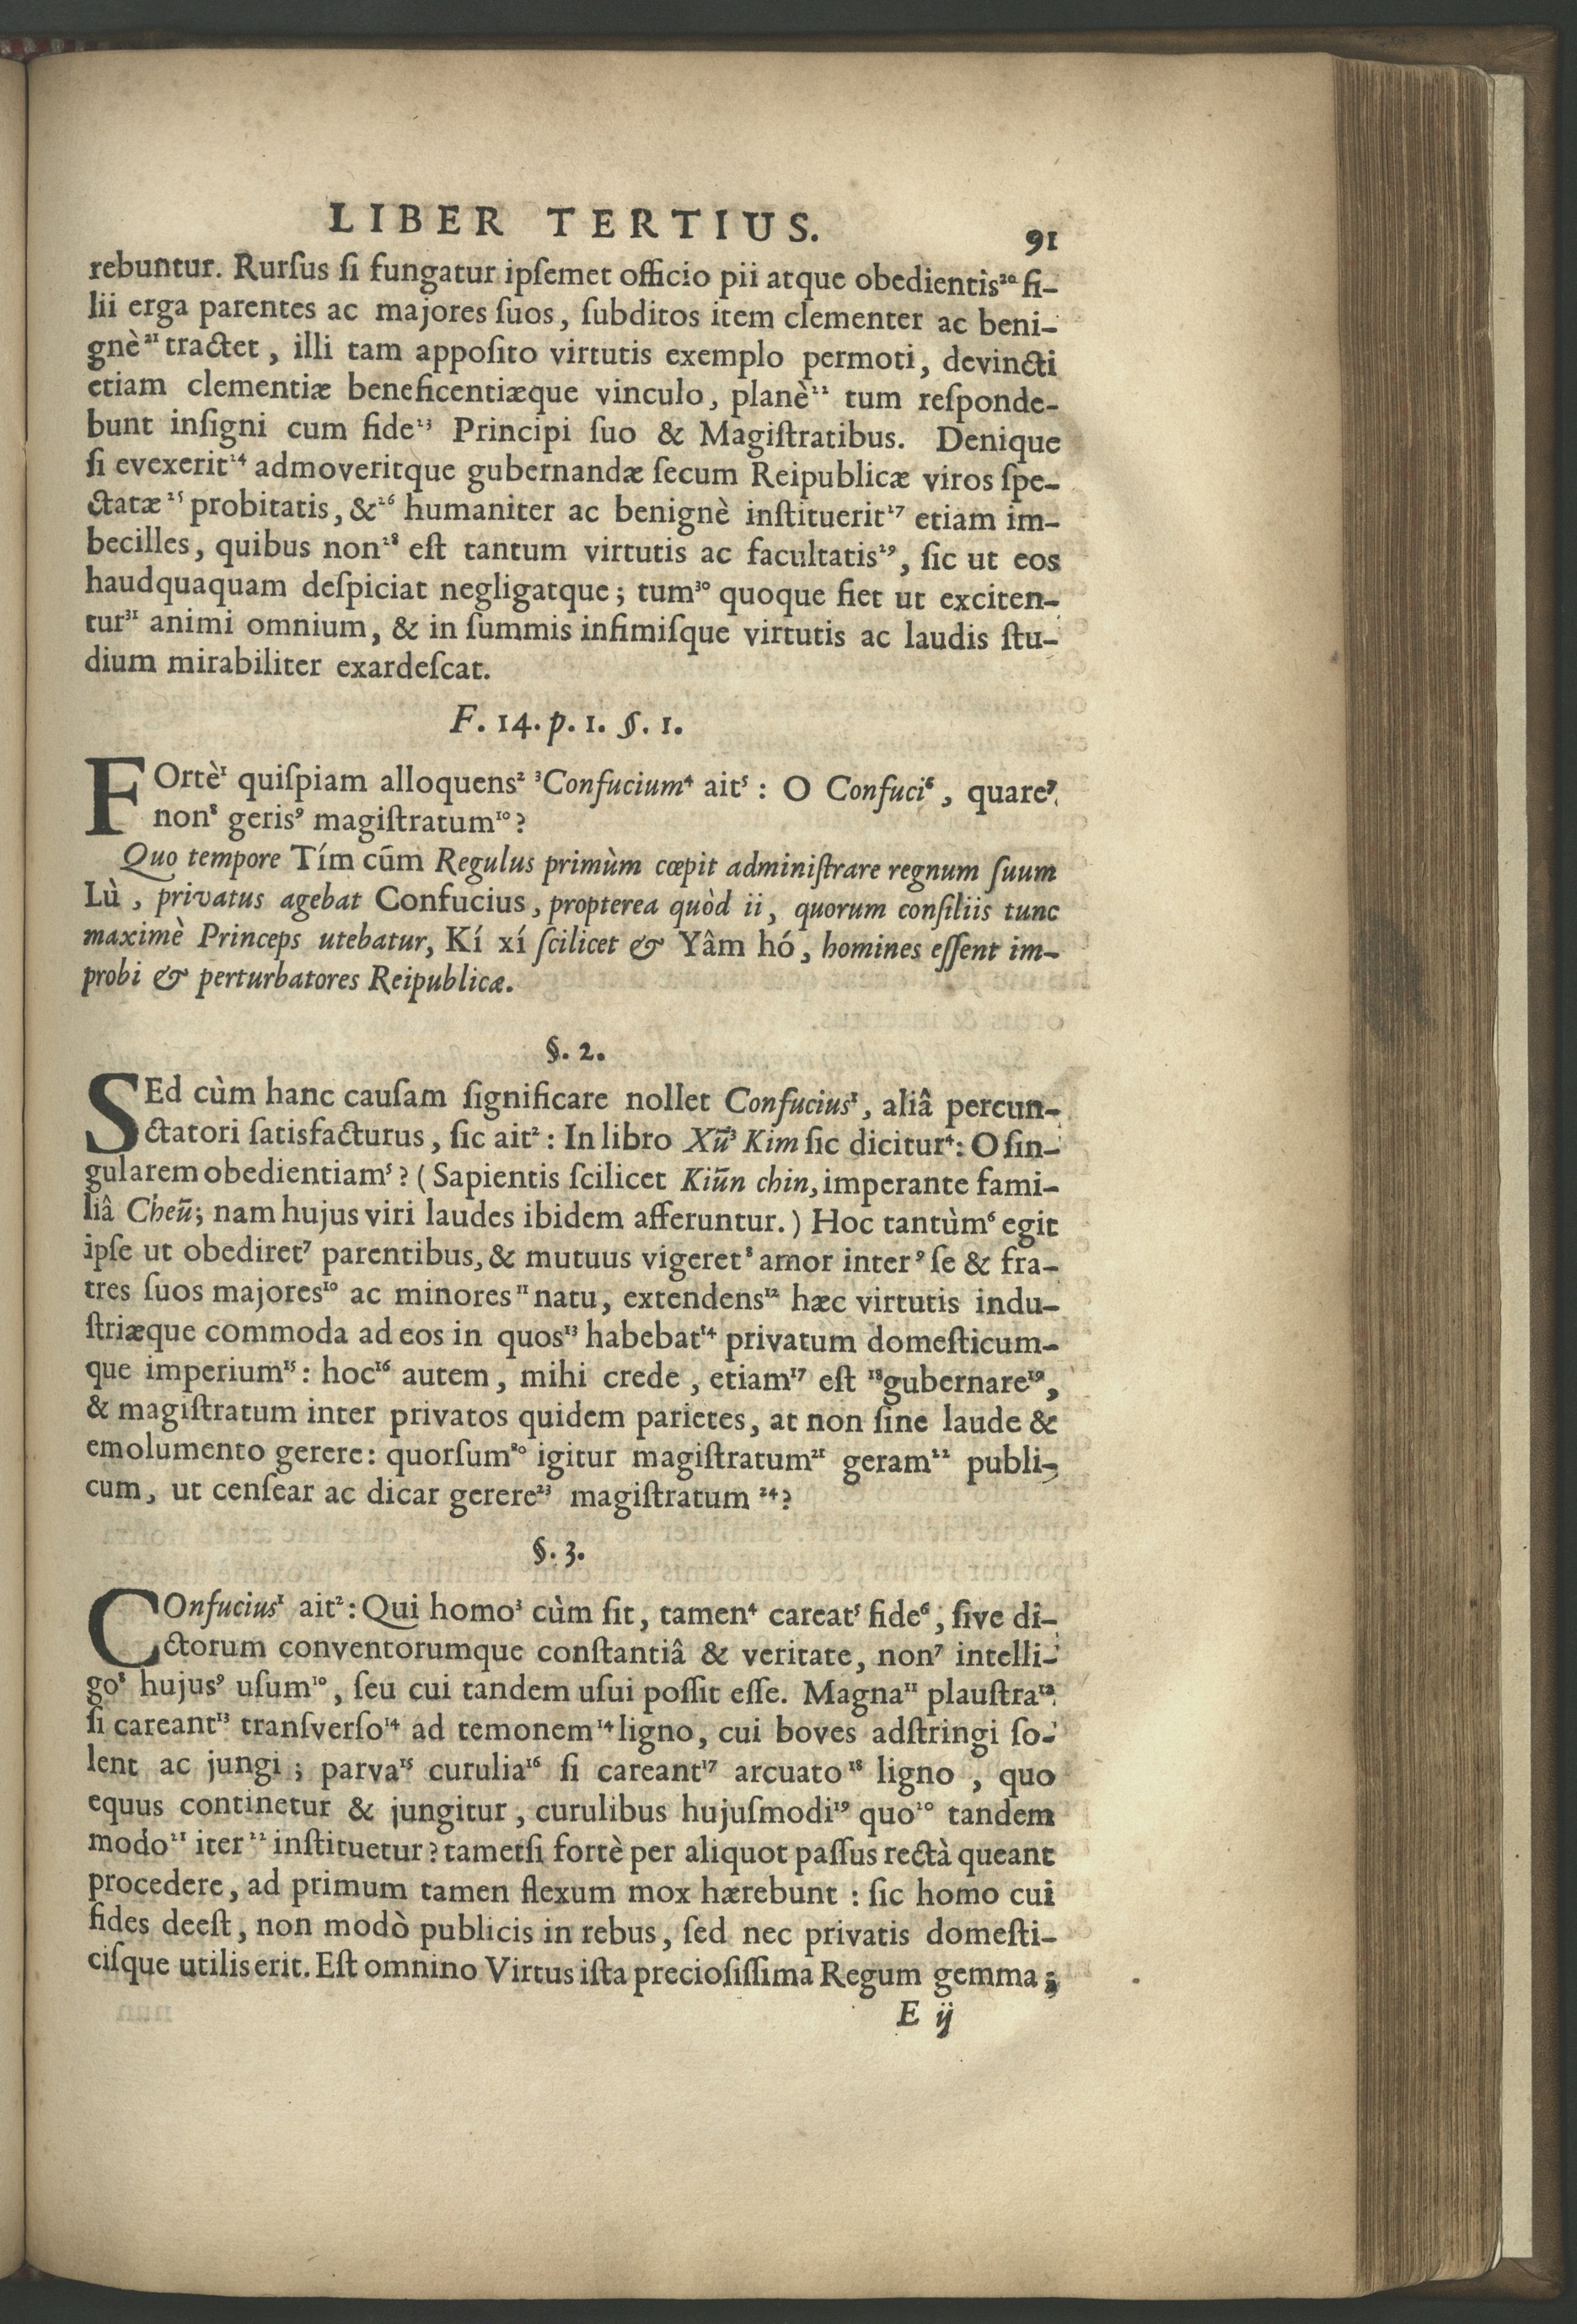 LIBER TERTIUS.
91
rebuntur. Rurſus ſi fungatur ipſemet officio pii atque obedientis²⁰ fi-
lii erga parentes ac majores ſuos, ſubditos item clementer ac beni-
gnè²¹ tractet, illi tam appoſito virtutis exemplo permoti, devincti
etiam clementiæ beneficentiæque vinculo, planè²² tum reſponde-
bunt inſigni cum fide²³ Principi ſuo & Magiſtratibus. Denique
ſi evexerit²⁴ admoveritque gubernandæ ſecum Reipublicæ viros ſpe-
ctatæ²⁵ probitatis, &²⁶ humaniter ac benignè inſtituerit²⁷ etiam im-
becilles, quibus non²⁸ eſt tantum virtutis ac facultatis²⁹, ſic ut eos
haudquaquam deſpiciat negligatque; tum³⁰ quoque fiet ut exciten-
tur³¹ animi omnium, & in ſummis infimiſque virtutis ac laudis ſtu-
dium mirabiliter exardeſcat.
F. 14. p. 1. §. 1.
FOrtè¹ quiſpiam alloquens² ³Confucium⁴ ait⁵ : O Confuci⁶, quare⁷
non⁸ geris⁹ magiſtratum¹⁰?
Quo tempore Tím cūm Regulus primùm cœpit adminiſtrare regnum ſuum
Lù, privatus agebat Confucius, propterea quòd ii, quorum conſiliis tunc
maximè Princeps utebatur, Kí xí ſcilicet & Yâm hó, homines eſſent im-
probi & perturbatores Reipublicæ.
§. 2.
SEd cùm hanc cauſam ſignificare nollet Confucius¹, aliâ percun-
ctatori ſatisfacturus, ſic ait² : In libro Xū³ Kim ſic dicitur⁴: O ſin-
gularem obedientiam⁵? (Sapientis ſcilicet Kiūn chin, imperante fami-
liâ Cheū; nam hujus viri laudes ibidem afferuntur.) Hoc tantùm⁶ egit
ipſe ut obediret⁷ parentibus, & mutuus vigeret⁸ amor inter⁹ ſe & fra-
tres ſuos majores¹⁰ ac minores¹¹ natu, extendens¹² hæc virtutis indu-
ſtriæque commoda ad eos in quos¹³ habebat¹⁴ privatum domeſticum-
que imperium¹⁵: hoc¹⁶ autem, mihi crede, etiam¹⁷ eſt ¹⁸gubernare¹⁹,
& magiſtratum inter privatos quidem parietes, at non ſine laude &
emolumento gerere: quorſum²⁰ igitur magiſtratum²¹ geram²² publi-
cum, ut cenſear ac dicar gerere²³ magiſtratum ²⁴?
§. 3.
COnfucius¹ ait²: Qui homo³ cùm ſit, tamen⁴ careat⁵ fide⁶, ſive di-
ctorum conventorumque conſtantiâ & veritate, non⁷ intelli-
go⁸ hujus⁹ uſum¹⁰, ſeu cui tandem uſui poſſit eſſe. Magna¹¹ plauſtra¹²
ſi careant¹³ tranſverſo¹⁴ ad temonem¹⁴ ligno, cui boves adſtringi ſo-
lent ac jungi; parva¹⁵ curulia¹⁶ ſi careant¹⁷ arcuato¹⁸ ligno, quo
equus continetur & jungitur, curulibus hujuſmodi¹⁹ quo²⁰ tandem
modo²¹ iter²² inſtituetur? tametſi fortè per aliquot paſſus rectà queant
procedere, ad primum tamen flexum mox hærebunt : ſic homo cui
fides deeſt, non modò publicis in rebus, ſed nec privatis domeſti-
ciſque utilis erit. Eſt omnino Virtus iſta precioſiſſima Regum gemma;
E ij